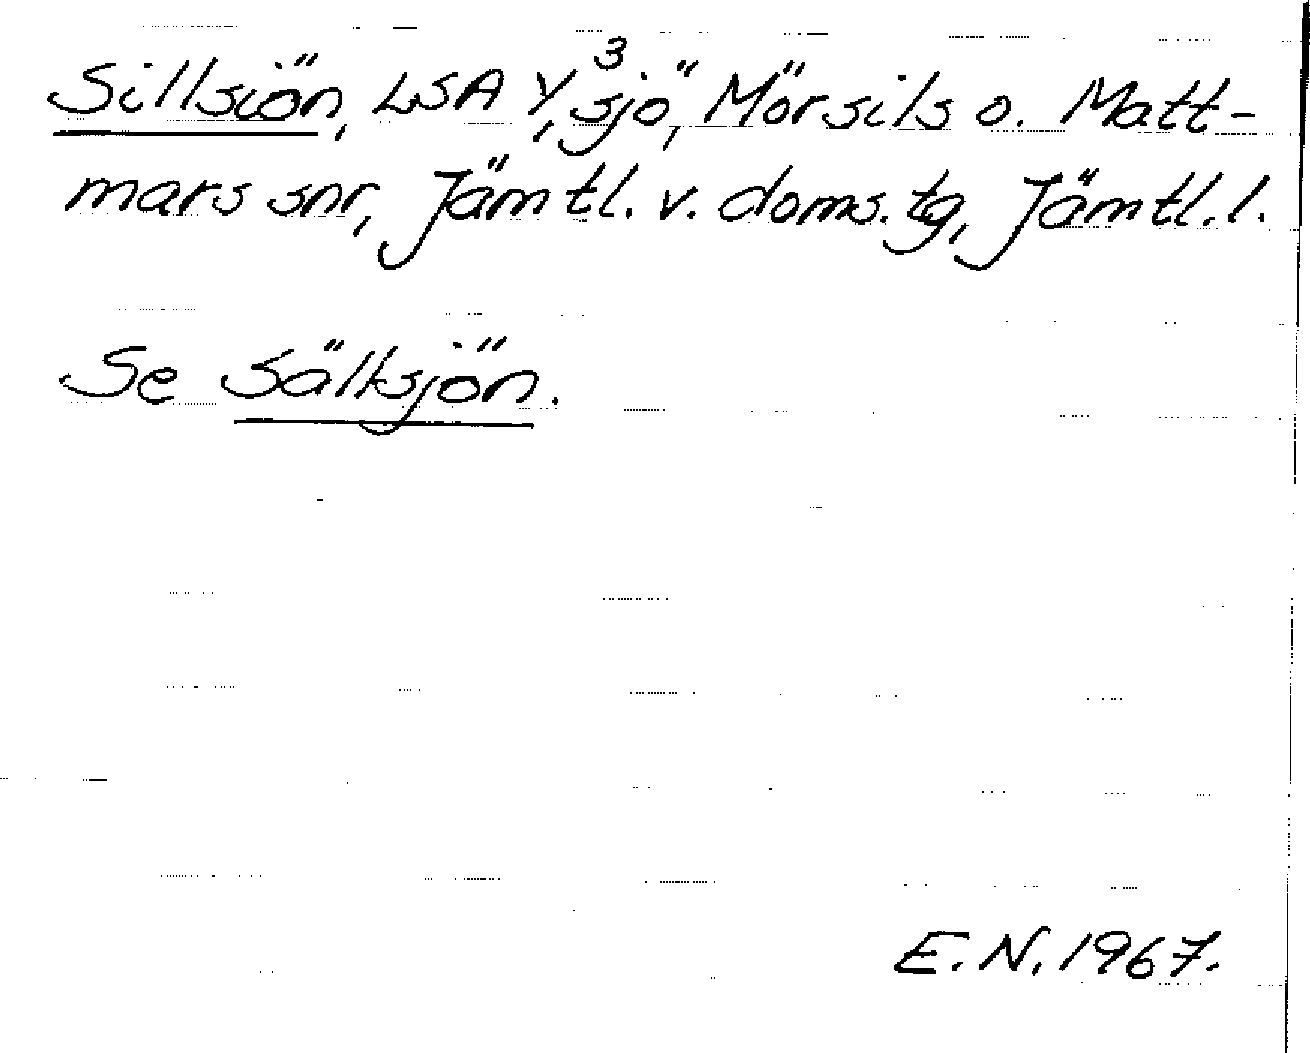 Sillsiön, LSA Y³, sjö, Mörsils o. Matt-
mars snr, Jämtl. v. doms. tg, Jämtl. l.
Se Sälksjön.
E. N. 1967.